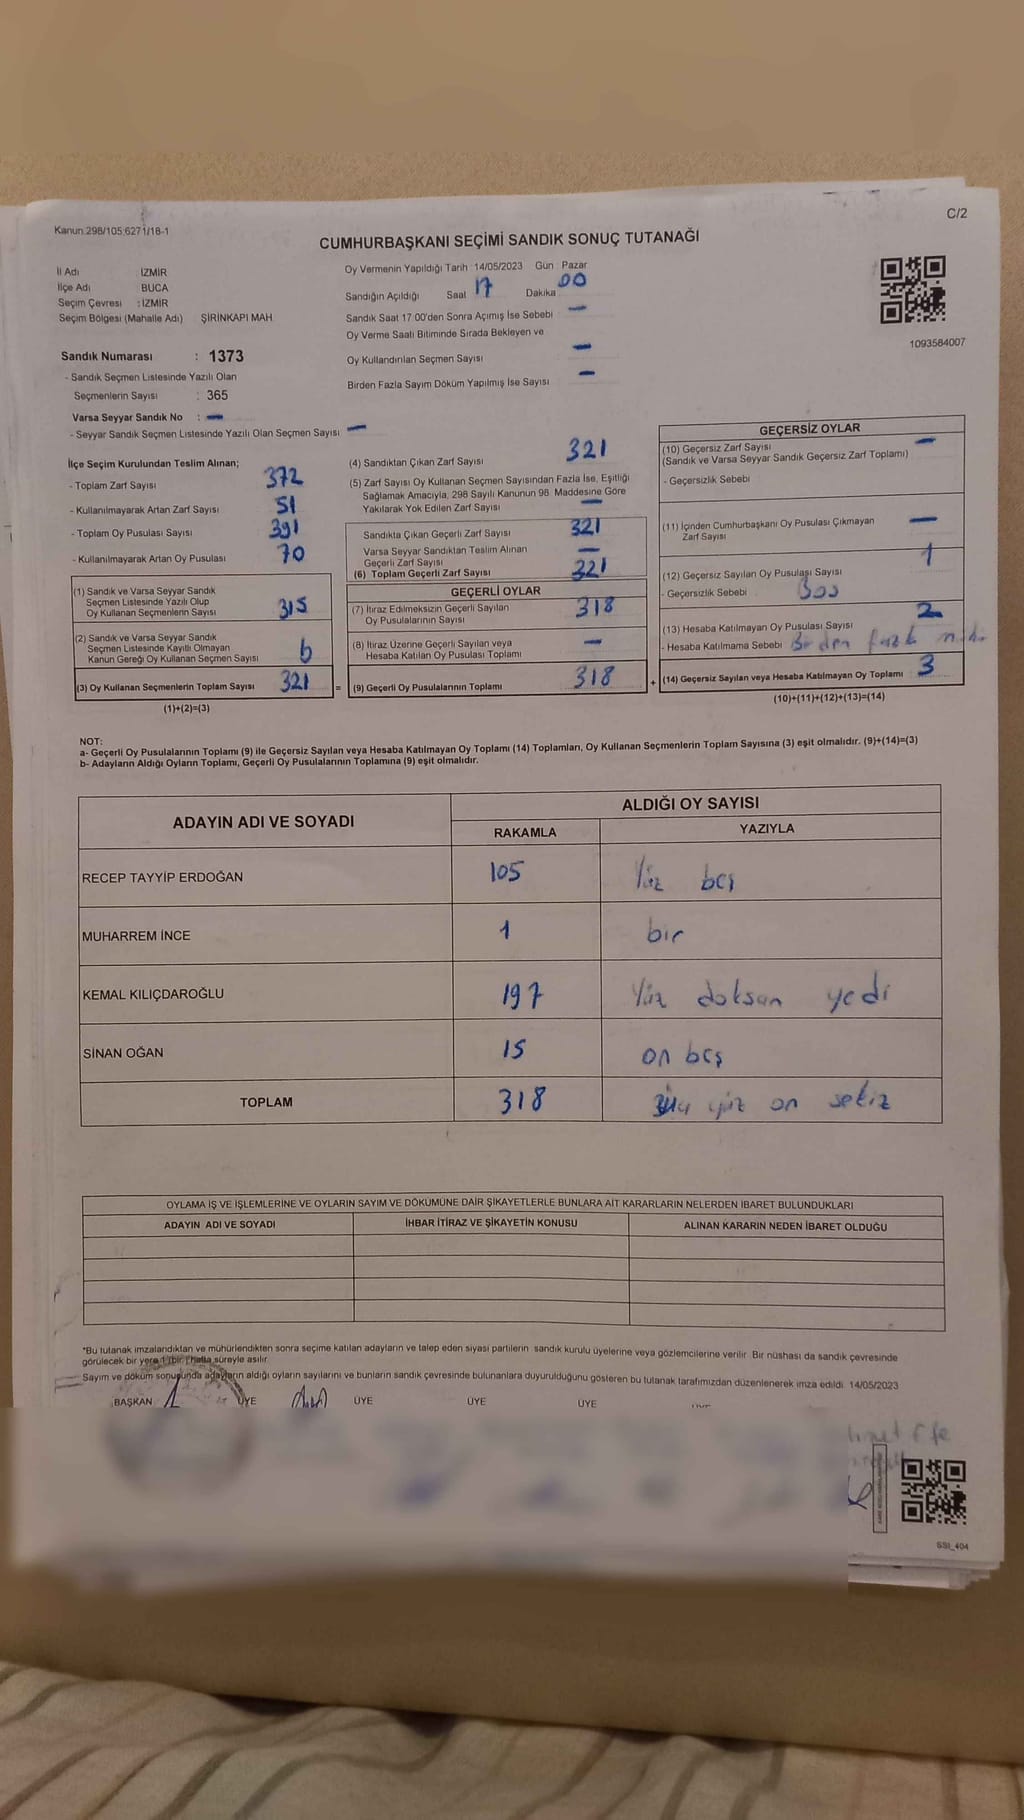 Kanun 298/105,6271/18-1
C/2
CUMHURBAŞKANI SEÇİMİ SANDIK SONUÇ TUTANAĞI
İl Adı : İZMİR
İlçe Adı BUCA
Seçim Çevresi : İZMİR
Seçim Bölgesi (Mahalle Adı) ŞİRİNKAPI MAH.
Sandık Numarası : 1373
- Sandık Seçmen Listesinde Yazılı Olan
Seçmenlerin Sayısı : 365
Varsa Seyyar Sandık No : —
- Seyyar Sandık Seçmen Listesinde Yazılı Olan Seçmen Sayısı —
Oy Vermenin Yapıldığı Tarih :14/05/2023 Gün : Pazar
Sandığın Açıldığı Saat 17 Dakika 00
Sandık Saat 17:00'den Sonra Açılmış İse Sebebi —
Oy Verme Saati Bitiminde Sırada Bekleyen ve
Oy Kullandırılan Seçmen Sayısı —
Birden Fazla Sayım Döküm Yapılmış İse Sayısı —
1093584007
İlçe Seçim Kurulundan Teslim Alınan;
- Toplam Zarf Sayısı 372
- Kullanılmayarak Artan Zarf Sayısı 51
- Toplam Oy Pusulası Sayısı 391
- Kullanılmayarak Artan Oy Pusulası 70
(1) Sandık ve Varsa Seyyar Sandık
Seçmen Listesinde Yazılı Olup
Oy Kullanan Seçmenlerin Sayısı 315
(2) Sandık ve Varsa Seyyar Sandık
Seçmen Listesinde Kayıtlı Olmayan
Kanun Gereği Oy Kullanan Seçmen Sayısı 6
(3) Oy Kullanan Seçmenlerin Toplam Sayısı 321
(1)+(2)=(3)
(4) Sandıktan Çıkan Zarf Sayısı 321
(5) Zarf Sayısı Oy Kullanan Seçmen Sayısından Fazla İse, Eşitliği
Sağlamak Amacıyla, 298 Sayılı Kanunun 98. Maddesine Göre
Yakılarak Yok Edilen Zarf Sayısı —
Sandıkta Çıkan Geçerli Zarf Sayısı 321
Varsa Seyyar Sandıktan Teslim Alınan
Geçerli Zarf Sayısı —
(6) Toplam Geçerli Zarf Sayısı 321
GEÇERLİ OYLAR
(7) İtiraz Edilmeksizin Geçerli Sayılan
Oy Pusulalarının Sayısı 318
(8) İtiraz Üzerine Geçerli Sayılan veya
Hesaba Katılan Oy Pusulası Toplamı —
= (9) Geçerli Oy Pusulalarının Toplamı 318
GEÇERSİZ OYLAR
(10) Geçersiz Zarf Sayısı —
(Sandık ve Varsa Seyyar Sandık Geçersiz Zarf Toplamı)
- Geçersizlik Sebebi
(11) İçinden Cumhurbaşkanı Oy Pusulası Çıkmayan
Zarf Sayısı —
(12) Geçersiz Sayılan Oy Pusulası Sayısı 1
- Geçersizlik Sebebi Boş
(13) Hesaba Katılmayan Oy Pusulası Sayısı 2
- Hesaba Katılmama Sebebi Birden fazla
+ (14) Geçersiz Sayılan veya Hesaba Katılmayan Oy Toplamı 3
(10)+(11)+(12)+(13)=(14)
NOT:
a- Geçerli Oy Pusulalarının Toplamı (9) ile Geçersiz Sayılan veya Hesaba Katılmayan Oy Toplamı (14) Toplamları, Oy Kullanan Seçmenlerin Toplam Sayısına (3) eşit olmalıdır. (9)+(14)=(3)
b- Adayların Aldığı Oyların Toplamı, Geçerli Oy Pusulalarının Toplamına (9) eşit olmalıdır.
ADAYIN ADI VE SOYADI ALDIĞI OY SAYISI
RAKAMLA YAZIYLA
RECEP TAYYİP ERDOĞAN 105 Yüz beş
MUHARREM İNCE 1 bir
KEMAL KILIÇDAROĞLU 197 Yüz doksan yedi
SİNAN OĞAN 15 on beş
TOPLAM 318 yüz on sekiz
OYLAMA İŞ VE İŞLEMLERİNE VE OYLARIN SAYIM VE DÖKÜMÜNE DAİR ŞİKAYETLERLE BUNLARA AİT KARARLARIN NELERDEN İBARET BULUNDUKLARI
ADAYIN ADI VE SOYADI İHBAR İTİRAZ VE ŞİKAYETİN KONUSU ALINAN KARARIN NEDEN İBARET OLDUĞU
*Bu tutanak imzalandıktan ve mühürlendikten sonra seçime katılan adayların ve talep eden siyasi partilerin sandık kurulu üyelerine veya gözlemcilerine verilir. Bir nüshası da sandık çevresinde
görülecek bir yere 1 (bir) hafta süreyle asılır.
Sayım ve döküm sonucunda adayların aldığı oyların sayılarını ve bunların sandık çevresinde bulunanlara duyurulduğunu gösteren bu tutanak tarafımızdan düzenlenerek imza edildi. 14/05/2023
BAŞKAN ÜYE ÜYE ÜYE ÜYE
Efe
SSI_404